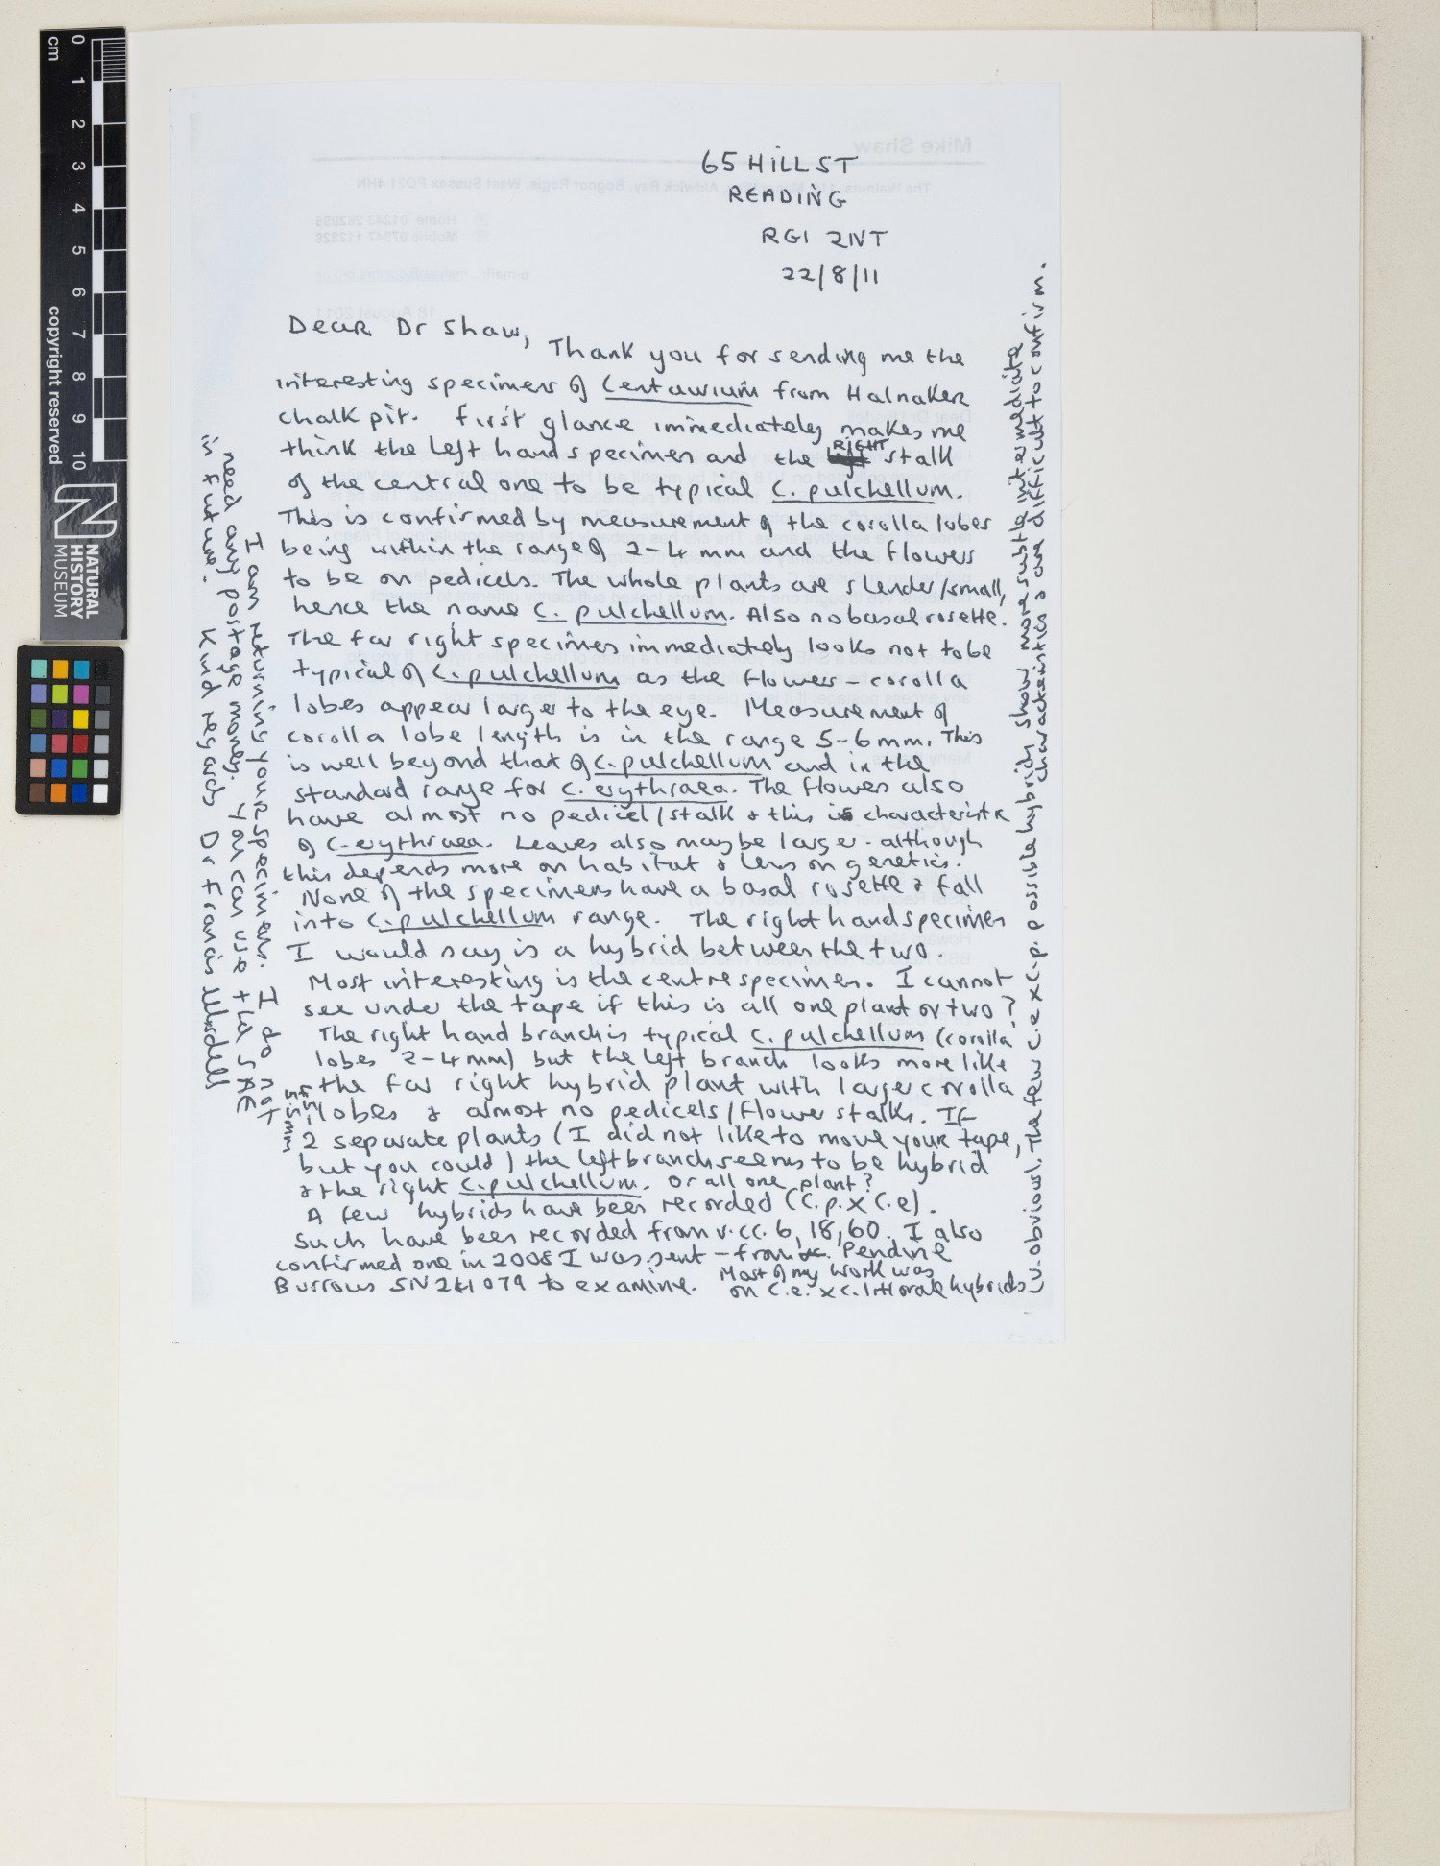 65 HILL ST
READING
RG1 2NT
22/8/11
Dear Dr Shaw,
Thank you for sending me the
interesting specimens of Centaurium from Halnaker
chalk pit. First glance immediately makes me
think the left hand specimen and the RIGHT stalk
of the central one to be typical C. pulchellum.
This is confirmed by measurement of the corolla lobes
being within the range of 2-4 mm and the flowers
to be on pedicels. The whole plants are slender/small,
hence the name C. pulchellum. Also no basal rosette.
The far right specimen immediately looks not to be
typical of C. pulchellum as the flowers - corolla
lobes appear larger to the eye. Measurement of
corolla lobe length is in the range 5-6mm. This
is well beyond that of C. pulchellum and in the
standard range for C. erythraea. The flowers also
have almost no pedicel/stalk & this is characteristic
of C. erythraea. Leaves also maybe larger - although
this depends more on habitat & less on genetics.
None of the specimens have a basal rosette & fall
into C. pulchellum range. The right hand specimen
I would say is a hybrid between the two.
Most interesting is the centre specimen. I cannot
see under the tape if this is all one plant or two?
The right hand branch is typical C. pulchellum (corolla
lobes 2-4mm) but the left branch looks more like
the far right hybrid plant with larger corolla
lobes & almost no pedicels/flower stalks. If
5.5mm
2 separate plants (I did not like to move your tape,
but you could) the left branch seems to be hybrid
& the right C. pulchellum. Or all one plant?
A few hybrids have been recorded (C.p. x C.e).
Such have been recorded from v.cc. 6, 18, 60. I also
confirmed one in 2008 I was sent - from Pendine
Burrows SN241079 to examine. Most of my work was
on C.e. x C. littorale hybrids
obvious). The few C.e x C.p. possible hybrids show more subtle intermediate
characteristics & are difficult to confirm.
I am returning your specimen. I do not
need any postage money. You can use the SAE
in future. Kind regards Dr Francis
Mike Shaw
18 August 2011
cm
0
1
2
3
4
5
6
7
8
9
10
copyright reserved
NATURAL
HISTORY
MUSEUM